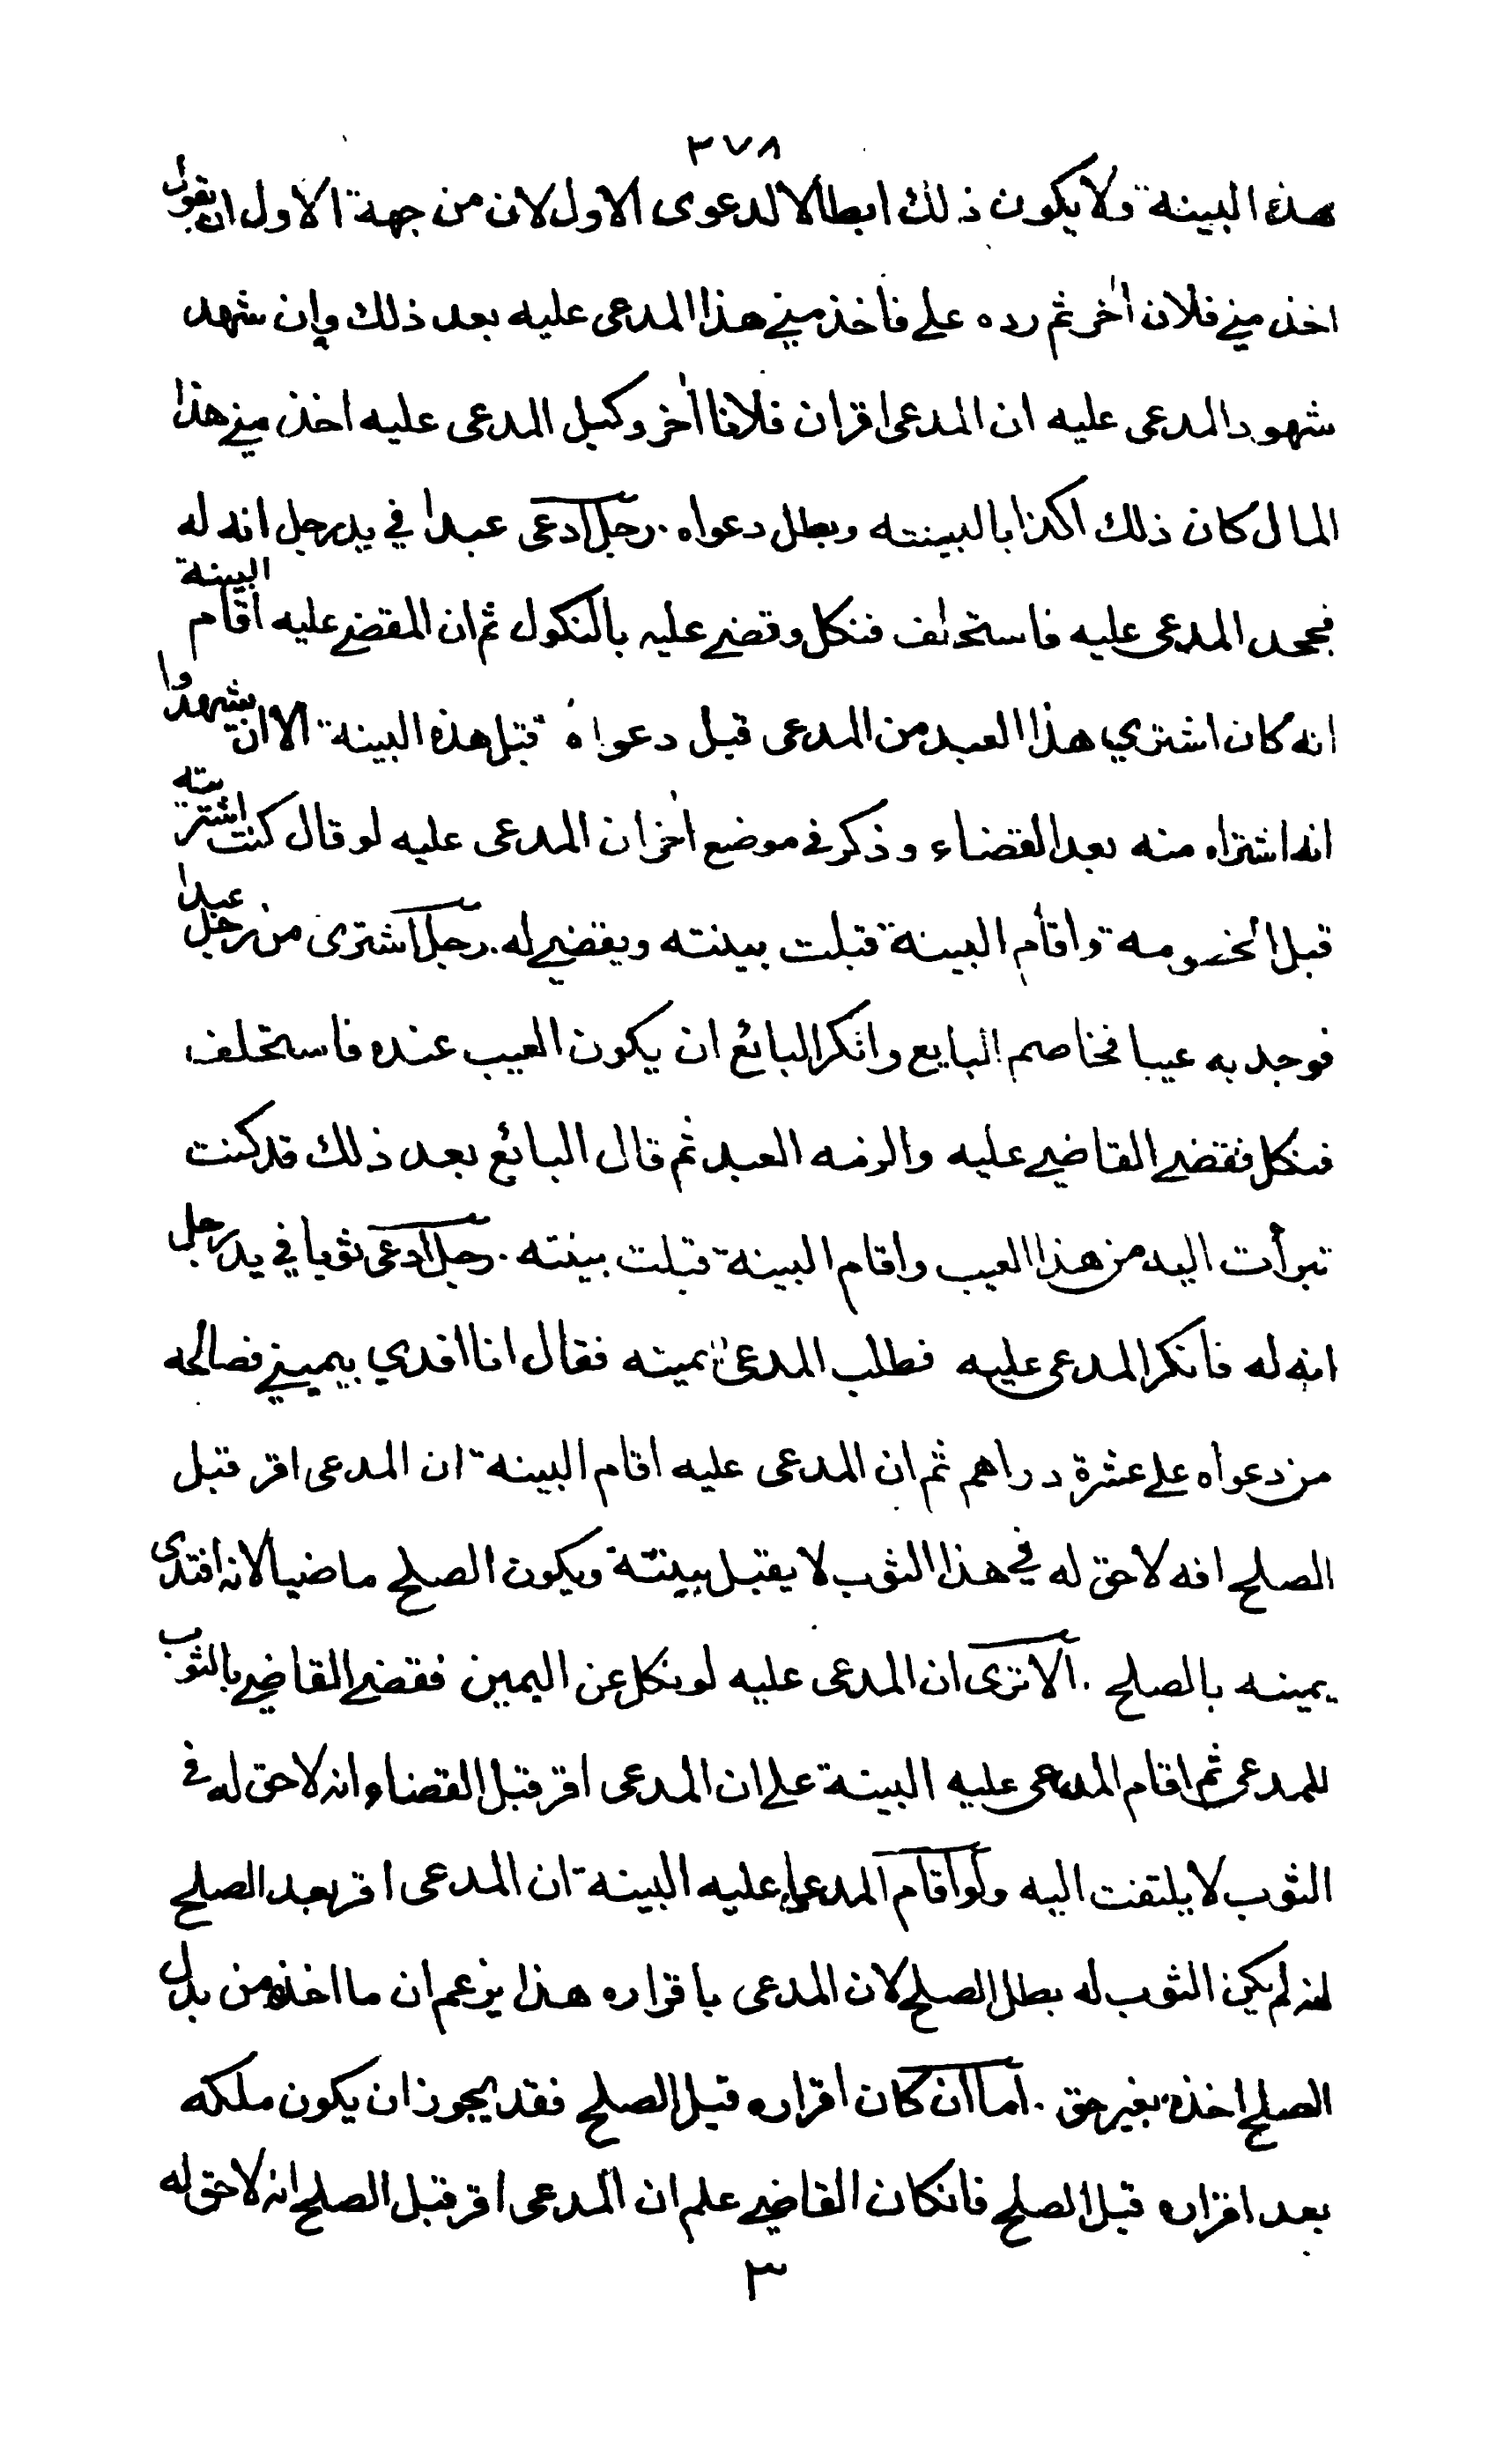 ٣٧٨
هذه البينة ولا يكون ذلك ابطالا لدعوى الاول لان من جهة الاول ان يقول
اخذ مني فلان اٰخر ثم رده علي فأخذ مني هذا المدعى عليه بعد ذلك وإن شهد
شهود المدعى عليه ان المدعى اقر ان فلانا اٰخر وكيل المدعى عليه اخذ مني هذا
المال كان ذلك اكذابا لبينته وبطل دعواه . رجل ادعى عبدا في يد رجل انه له
فجحد المدعى عليه فاستحلف فنكل وقضى عليه بالنكول ثم ان المقضى عليه اقام البينة
انه كان اشتري هذا العبد من المدعى قبل دعواه تقبل هذه البينة الا ان يشهدوا
انه اشتراه منه بعد القضاء وذكر في موضع اٰخر ان المدعى عليه لو قال كنت اشتريته
قبل الخصومة واقام البينة قبلت بينته ويقضي له . رجل اشترى من رجل عبدا
فوجد به عيبا فخاصم البايع وانكر البائع ان يكون العيب عنده فاستحلف
فنكل فقضى القاضي عليه والزمه العبد ثم قال البائع بعد ذلك قد كنت
تبرأت اليه من هذا العيب واقام البينة قبلت بينته . رجل ادعى ثوبا في يد رجل
انه له فانكر المدعى عليه فطلب المدعى يمينه فقال انا افدي بيميني فصالحه
من دعواه على عشرة دراهم ثم ان المدعى عليه اقام البينة ان المدعى اقر قبل
الصلح انه لا حق له في هذا الثوب لا يقبل بينته ويكون الصلح ماضيا لانه افتدى
يمينه بالصلح . الا ترى ان المدعى عليه لو نكل عن اليمين فقضى القاضي بالثوب
للمدعى ثم اقام المدعى عليه البينة على ان المدعى اقر قبل القضاء انه لا حق له في
الثوب لا يلتفت اليه ولو اقام المدعى عليه البينة ان المدعى اقر بعد الصلح
انه لم يكن الثوب له بطل الصلح لان المدعى باقراره هذا يزعم ان ما اخذه من بدل
الصلح اخذه بغير حق . اما ان كان اقراره قبل الصلح فقد يجوز ان يكون ملكه
بعد اقراره قبل الصلح فان كان القاضي علم ان المدعى اقر قبل الصلح انه لا حق له
٣